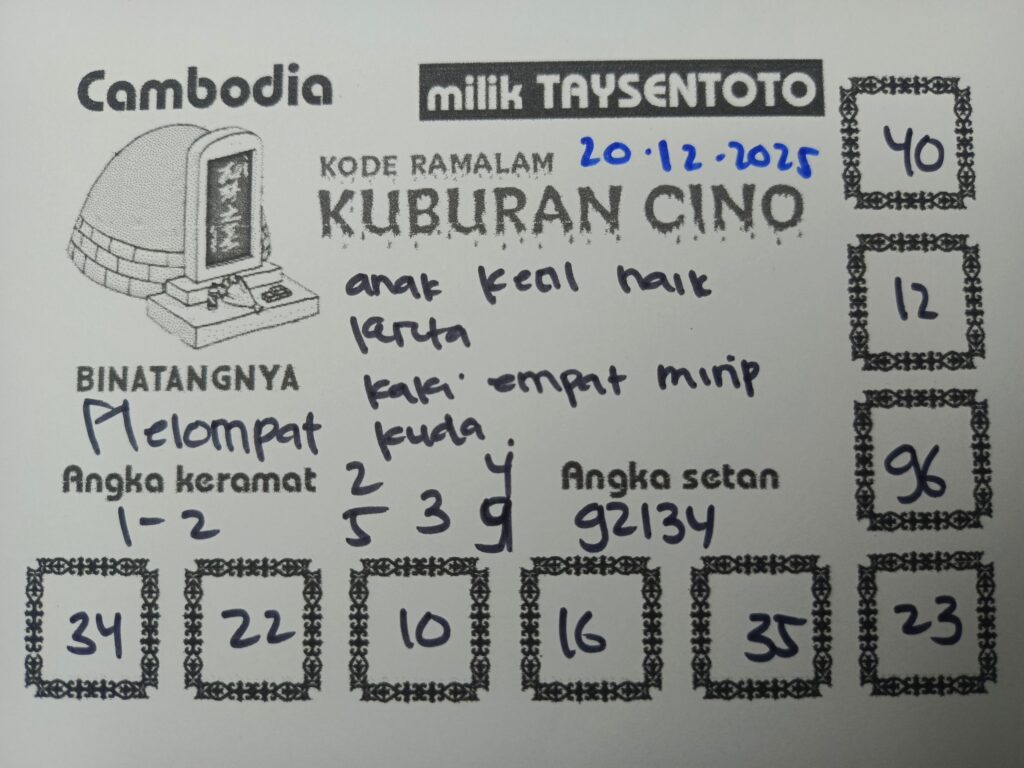 Cambodia
milik TAYSENTOTO
KODE RAMALAM 20.12.2025
KUBURAN CINO
anak kecil naik
kereta
kaki empat mirip
kuda.
BINATANGNYA
Melompat
Angka keramat
1-2
2 4
5 3 9
Angka setan
92134
40
12
96
34 22 10 16 35 23